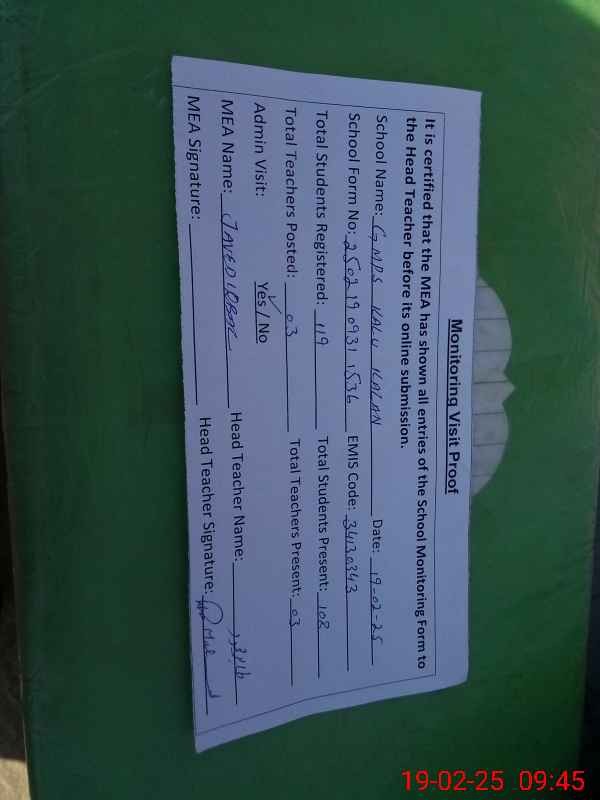 Monitoring Visit Proof
It is certified that the MEA has shown all entries of the School Monitoring Form to
the Head Teacher before its online submission.
School Name: GMPS KALU KALAN Date: 19-02-25
School Form No: 250219 0931 1536 EMIS Code: 34130343
Total Students Registered: 119 Total Students Present: 108
Total Teachers Posted: 03 Total Teachers Present: 03
Admin Visit: Yes / No
MEA Name: JAVED IQBAL Head Teacher Name:
MEA Signature: Head Teacher Signature:
19-02-25 09:45